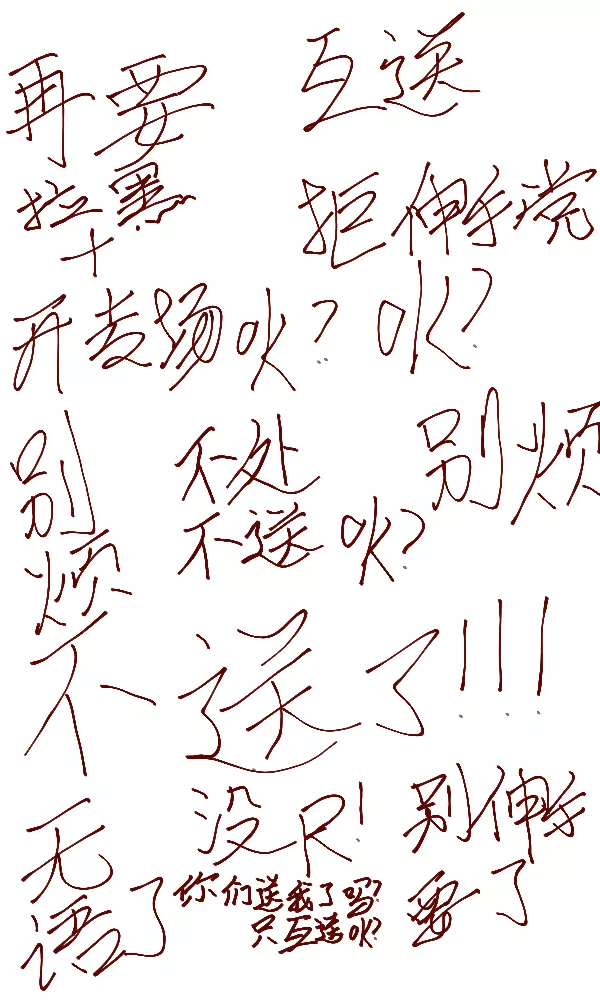 再要
拉黑
十
互送
拒伸手党
开麦场吹? 吹?
别
烦
不处
不送吹?
别烦
不送了!!!
无
语了
没R!
别伸手
要了
你们送我了吗?
只互送吹?